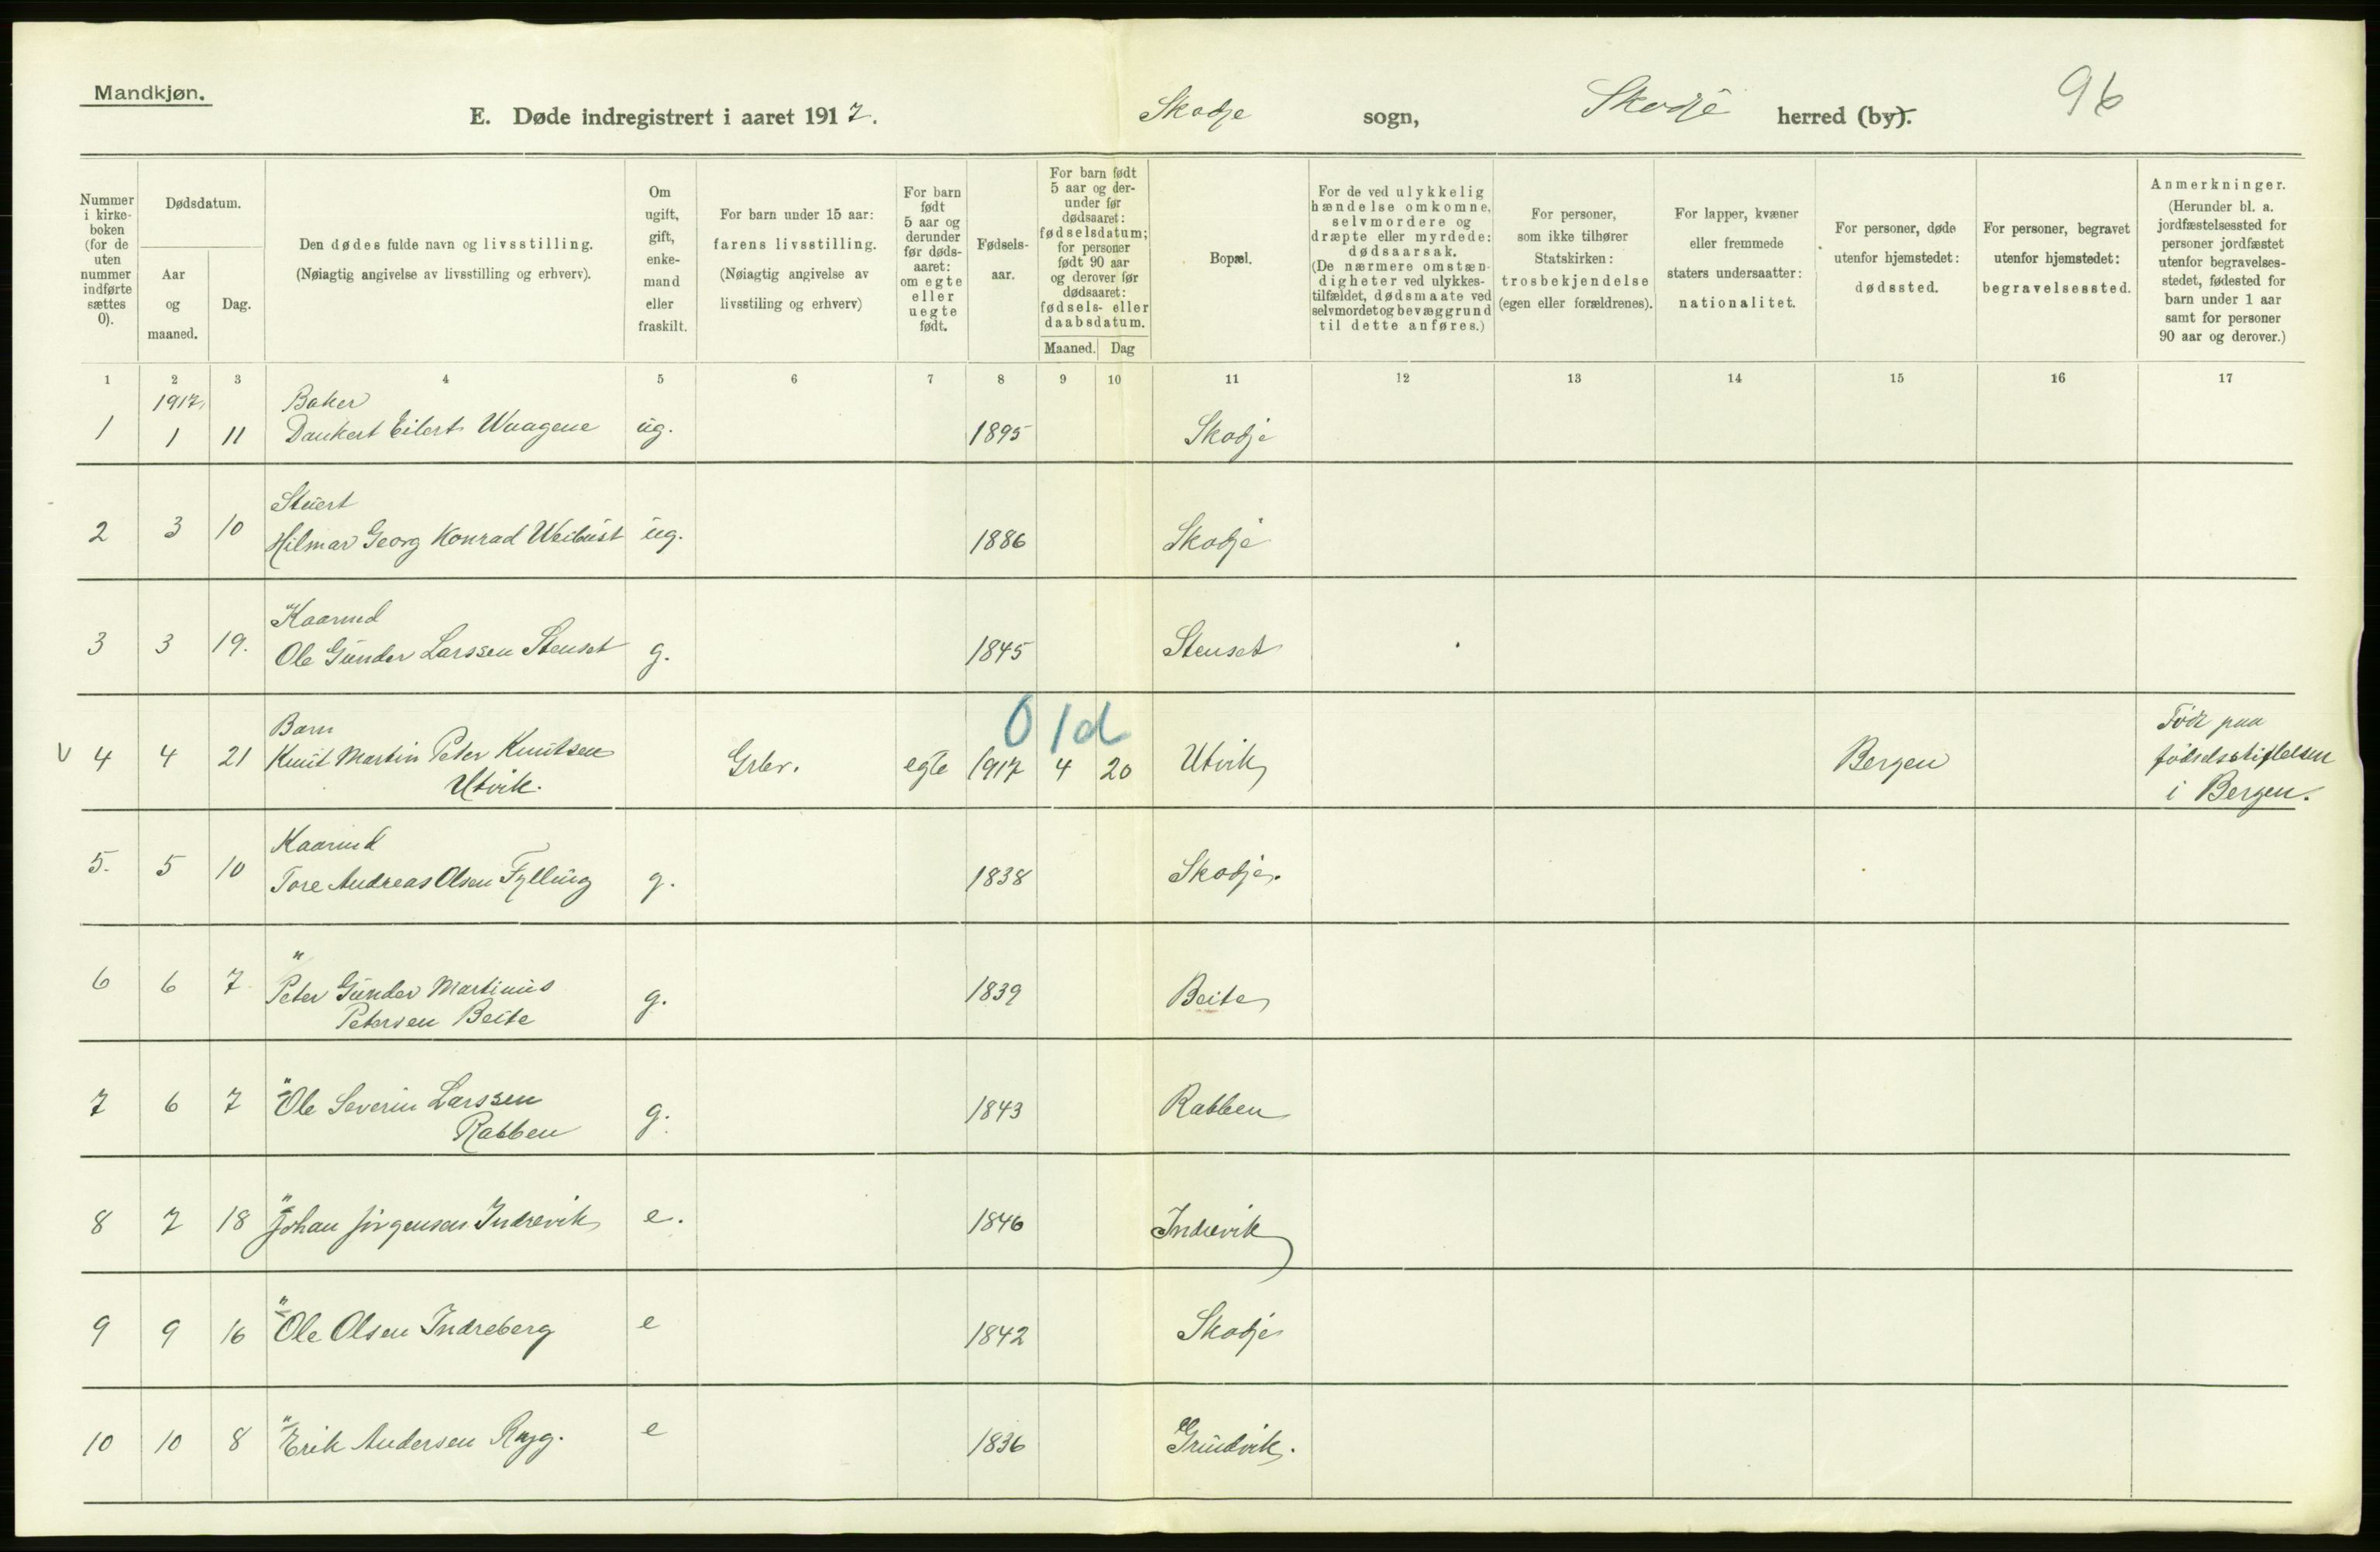 Mandkjøn.
E. Døde indregistrert i aaret 1917. Skodje sogn, Skodje herred (by). 96
Nummer i kirkeboken (for de uten nummer indførte sættes 0).
Dødsdatum.
Aar og maaned.
Dag.
Den dødes fulde navn og livsstilling.
(Nøiagtig angivelse av livsstilling og erhverv).
Om ugift, gift, enkemand eller fraskilt.
For barn under 15 aar: farens livsstilling. (Nøiagtig angivelse av livsstiling og erhverv)
For barn født 5 aar og derunder før dødsaaret: om egte eller uegte født.
Fødselsaar.
For barn født 5 aar og derunder før dødsaaret: fødselsdatum; for personer født 90 aar og derover før dødsaaret: fødsels- eller daabsdatum.
Maaned. Dag
Bopæl.
For de ved ulykkelig hændelse omkomne, selvmordere og dræpte eller myrdede: dødsaarsak. (De nærmere omstændigheter ved ulykkestilfældet, dødsmaate ved selvmordet og bevæggrund til dette anføres.)
For personer, som ikke tilhører Statskirken: trosbekjendelse (egen eller forældrenes).
For lapper, kvæner eller fremmede staters undersaatter: nationalitet.
For personer, døde utenfor hjemstedet: dødssted.
For personer, begravet utenfor hjemstedet: begravelsessted.
Anmerkninger. (Herunder bl. a. jordfæstelsessted for personer jordfæstet utenfor begravelsesstedet, fødested for barn under 1 aar samt for personer 90 aar og derover.)
1 2 3 4 5 6 7 8 9 10 11 12 13 14 15 16 17
1917. Baker
1 1 11 Dankert Eilert Waagene ug. 1895 Skodje
Stuert
2 3 10 Hilmar Georg Konrad Weibust ug. 1886 Skodje
Kaarmd
3 3 19. Ole Gunder Larssen Stenset g. 1845 Stenset
Barn 0 1d Född paa
V 4 4 21 Knut Martin Peter Knutsen Grbr. egte 1917 4 20 Utvik Bergen födselsstiftelsen
Utvik. i Bergen.
Kaarmd
5. 5 10 Tore Andreas Olsen Fylling g. 1838 Skodje.
"
6 6 7 Peter Gunder Martinus g. 1839 Beite
Petersen Beite
"
7 6 7 Ole Severin Larssen g. 1843 Rabben
Rabben
"
8 7 18 Johan Jörgensen Indrevik e. 1846 Indrevik
"
9 9 16 Ole Olsen Indreberg e 1842 Skodje
"
10 10 8 Erik Andersen Rygg. e 1836 Grindvik.